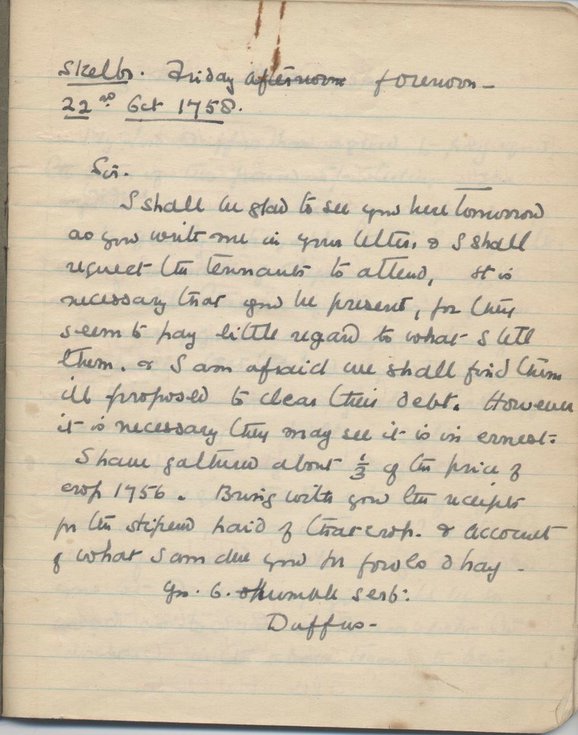 Skelbo. Friday afternoon forenoon -
22nd Oct 1758.
Sir.
I shall be glad to see you here tomorrow
as you write me in your letter. & I shall
request the tennants to attend, it is
necessary that you be present, for they
seem to pay little regard to what I tell
them. & I am afraid we shall find them
ill proposed to clear their debt. However
it is necessary they may see it is in ernest:
I have gathered about 1/3 of the price of
crop 1756. Bring with you the receipts
for the stipend paid of that crop. & account
of what I am due you for fowls & hay -
humble serb:
Duffus -